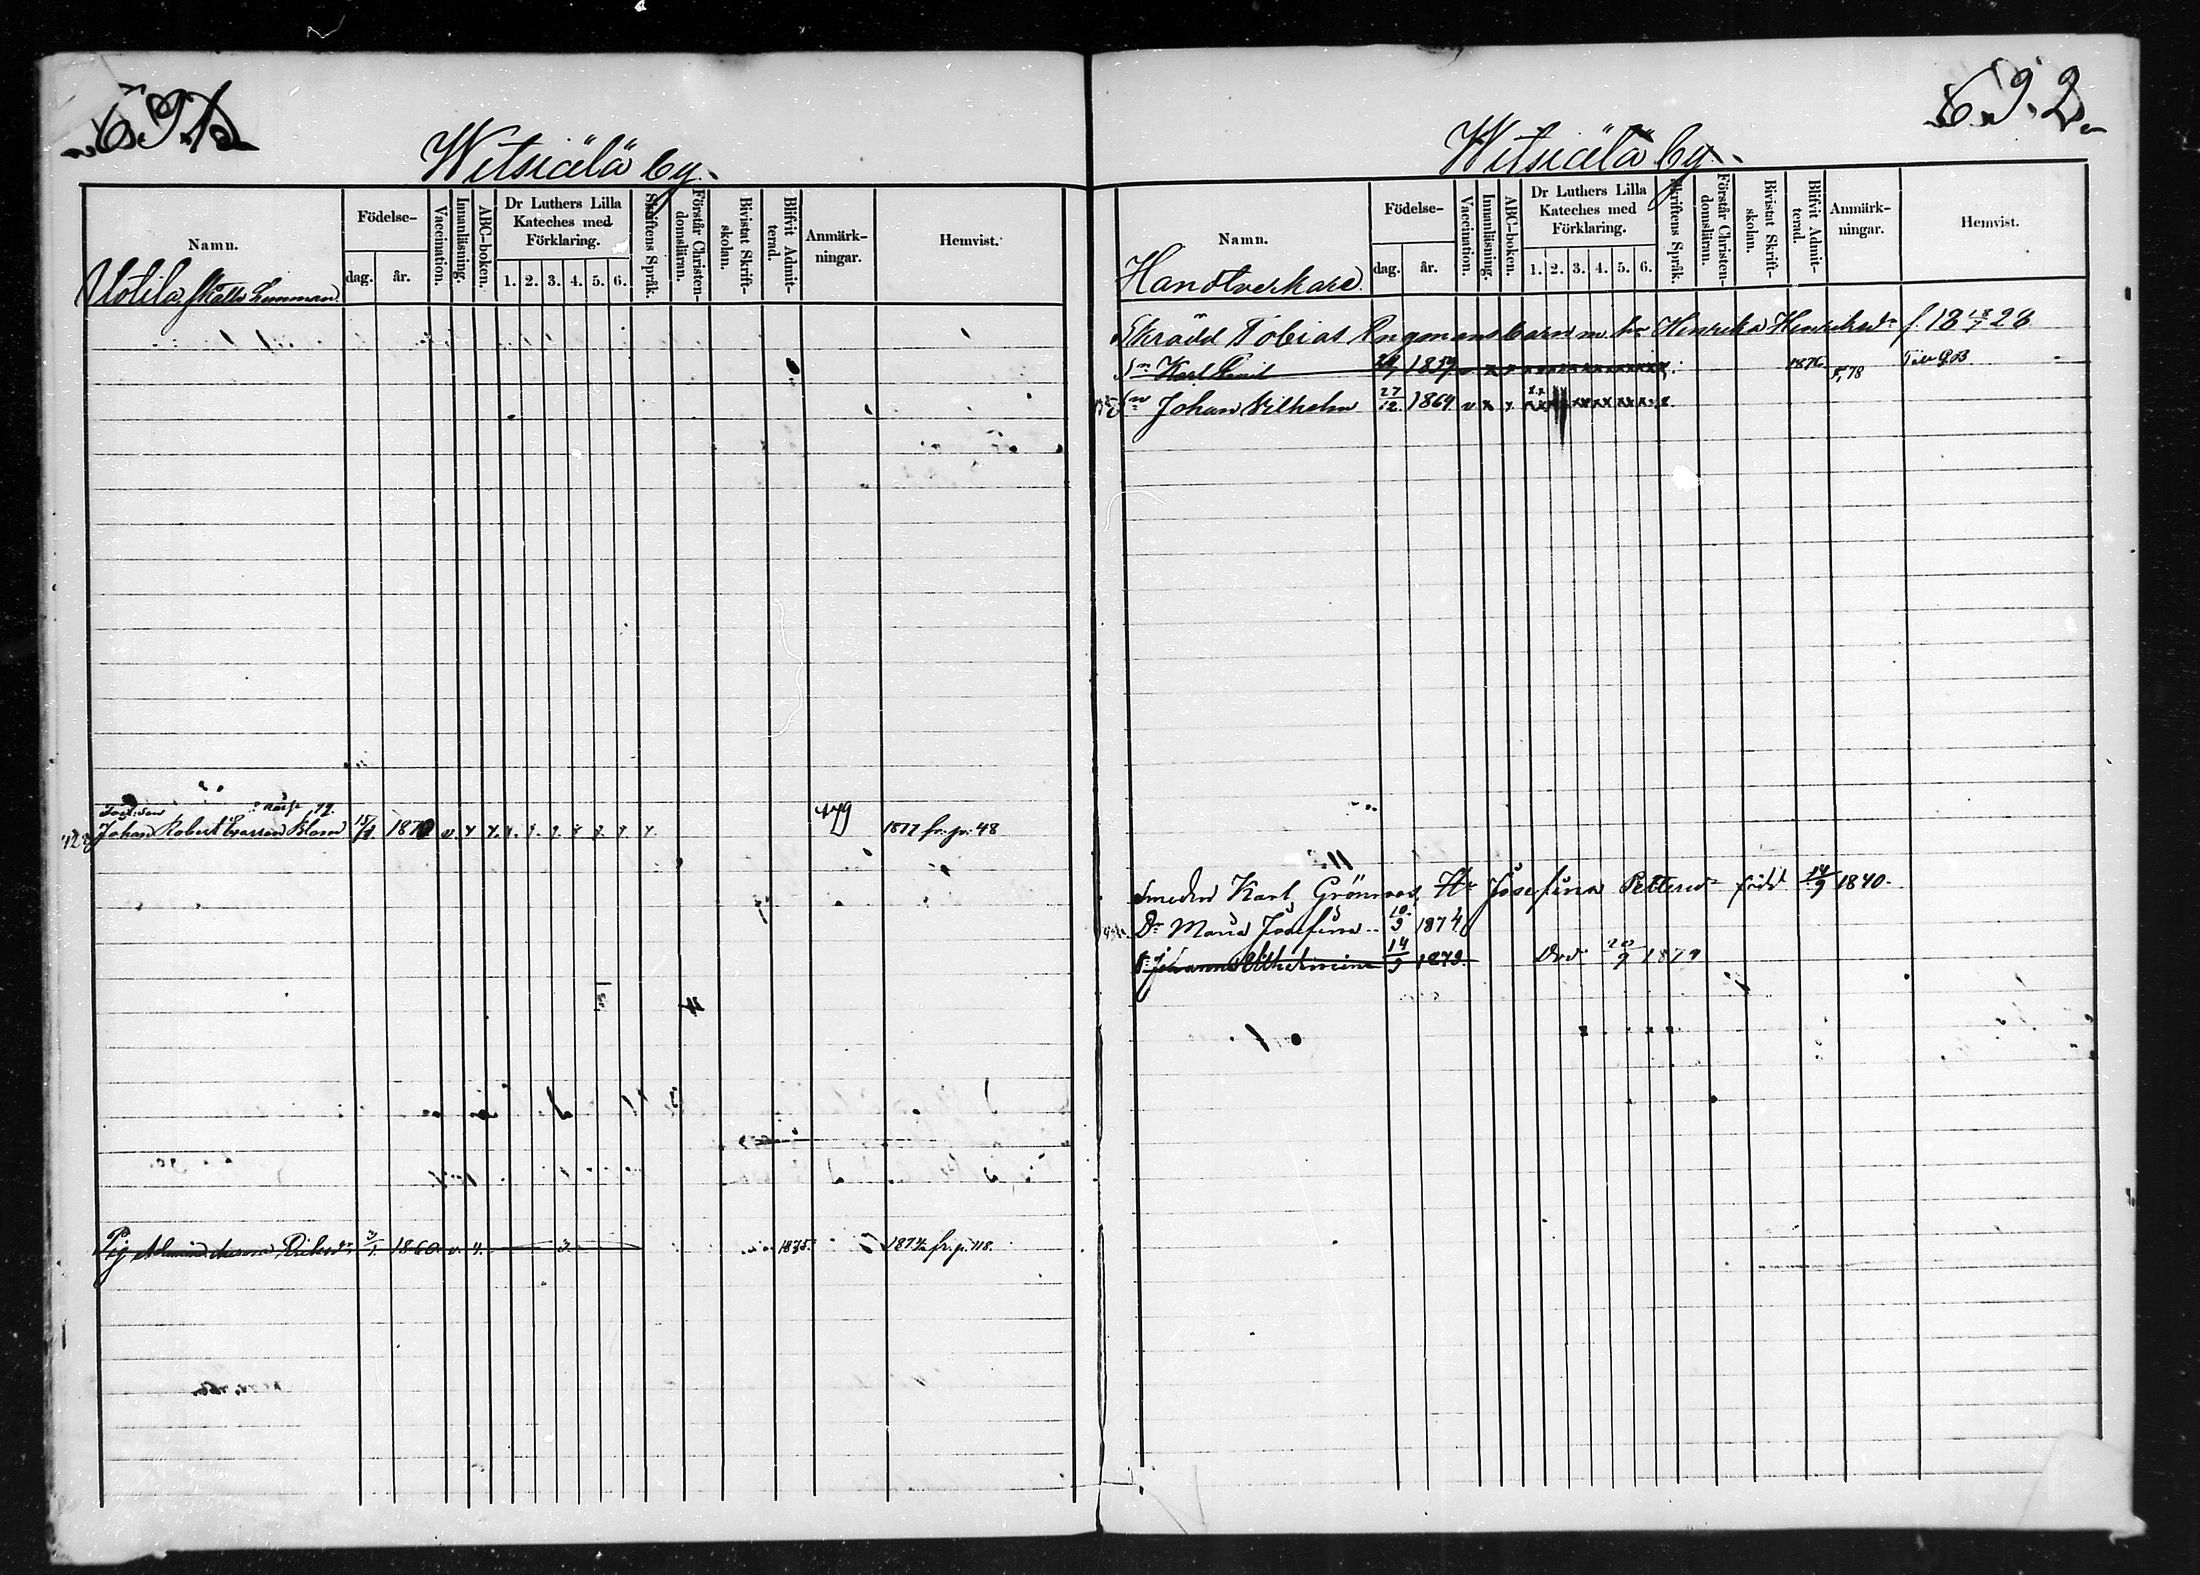 691
Witsiälä by.
Namn.
Födelse-
dag. år.
Vaccination.
Innanläsning.
ABC-boken.
Dr Luthers Lilla Kateches med Förklaring.
1. 2. 3. 4. 5. 6.
Skriftens Språk.
Förstår Christendomsläran.
Bivistat Skriftskolan.
Blifvit Admitterad.
Anmärkningar.
Hemvist.
Uotila
Johan Robert Blom 1870 v. 479 1877 fr. p. 48
Pig 3/1 1860 v. 3. 1875. 1874 fr. p. 118.
692
Witsiälä by.
Namn.
Födelse-
dag. år.
Vaccination.
Innanläsning.
ABC-boken.
Dr Luthers Lilla Kateches med Förklaring.
1. 2. 3. 4. 5. 6.
Skriftens Språk.
Förstår Christendomsläran.
Bivistat Skriftskolan.
Blifvit Admitterad.
Anmärkningar.
Hemvist.
Handtverkare.
Skrädd Tobias Engmans barn m. h. Henrika
Sn Karl Emil 1859 1876
Sn Johan Vilhelm 27/12 1864 v x x
Smeden Karl Grönroos, Hu Josefina Pettersdr född 14/9 1840.
Dr Maria Josefina 10/3 1874
Dr Johanna Wilhelmina 14/3 1879. Död 20/9 1879